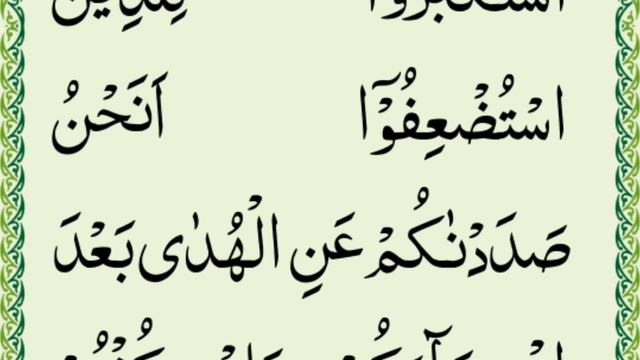 اسۡتَكۡبَرُوۡا لِلَّذِيۡنَ
اسۡتُضۡعِفُوۡۤا اَنَحۡنُ
صَدَدۡنٰكُمۡ عَنِ الۡهُدٰى بَعۡدَ